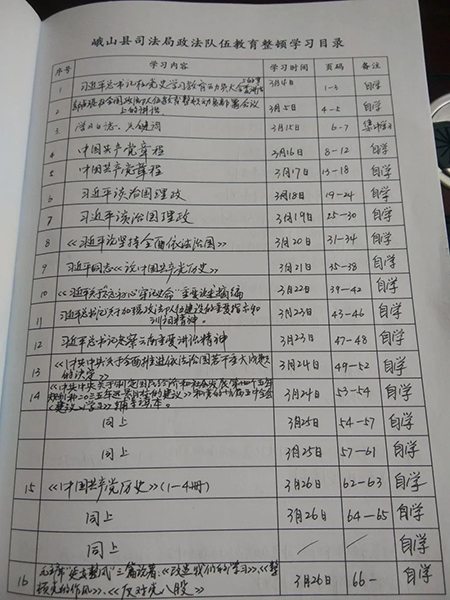 峨山县司法局政法队伍教育整顿学习目录
序号 学习内容 学习时间 页码 备注
1 习近平总书记在党史学习教育动员大会上的讲话 3月4日 1-3 自学
2 在全国政法队伍教育整顿动员部署会议上的讲话 3月5日 4-5 自学
3 学习日语、关键词 3月15日 6-7 集中学习
4 中国共产党章程 3月16日 8-12 自学
5 中国共产党章程 3月17日 13-18 自学
6 习近平谈治国理政 3月18日 19-24 自学
7 习近平谈治国理政 3月19日 25-30 自学
8 《习近平论坚持全面依法治国》 3月20日 31-34 自学
9 习近平同志《论中国共产党历史》 3月21日 35-38 自学
10 《习近平关于"不忘初心、牢记使命"重要论述摘编 3月22日 39-42 自学
11 习近平总书记关于加强政法队伍建设的重要指示和
训词精神。 3月23日 43-46 自学
12 习近平总书记考察云南重要讲话精神 3月23日 47-48 自学
13 《中共中央关于全面推进依法治国若干重大问题
的决定》 3月24日 49-52 自学
14 《中共中央关于制定国民经济和社会发展第十四个五年
规划和二〇三五年远景目标的建议》和党的十九届五中全会
《建议》学习辅导读本。 3月24日 53-54 自学
同上 3月25日 54-57 自学
同上 3月25日 57-61 自学
15 《中国共产党历史》(1-4册) 3月26日 62-63 自学
同上 3月26日 64-65 自学
同上 / / 自学
16 毛泽东"延安整风"三篇论著、《改造我们的学习》、《整
顿党的作风》、《反对党八股》 3月26日 66- 自学